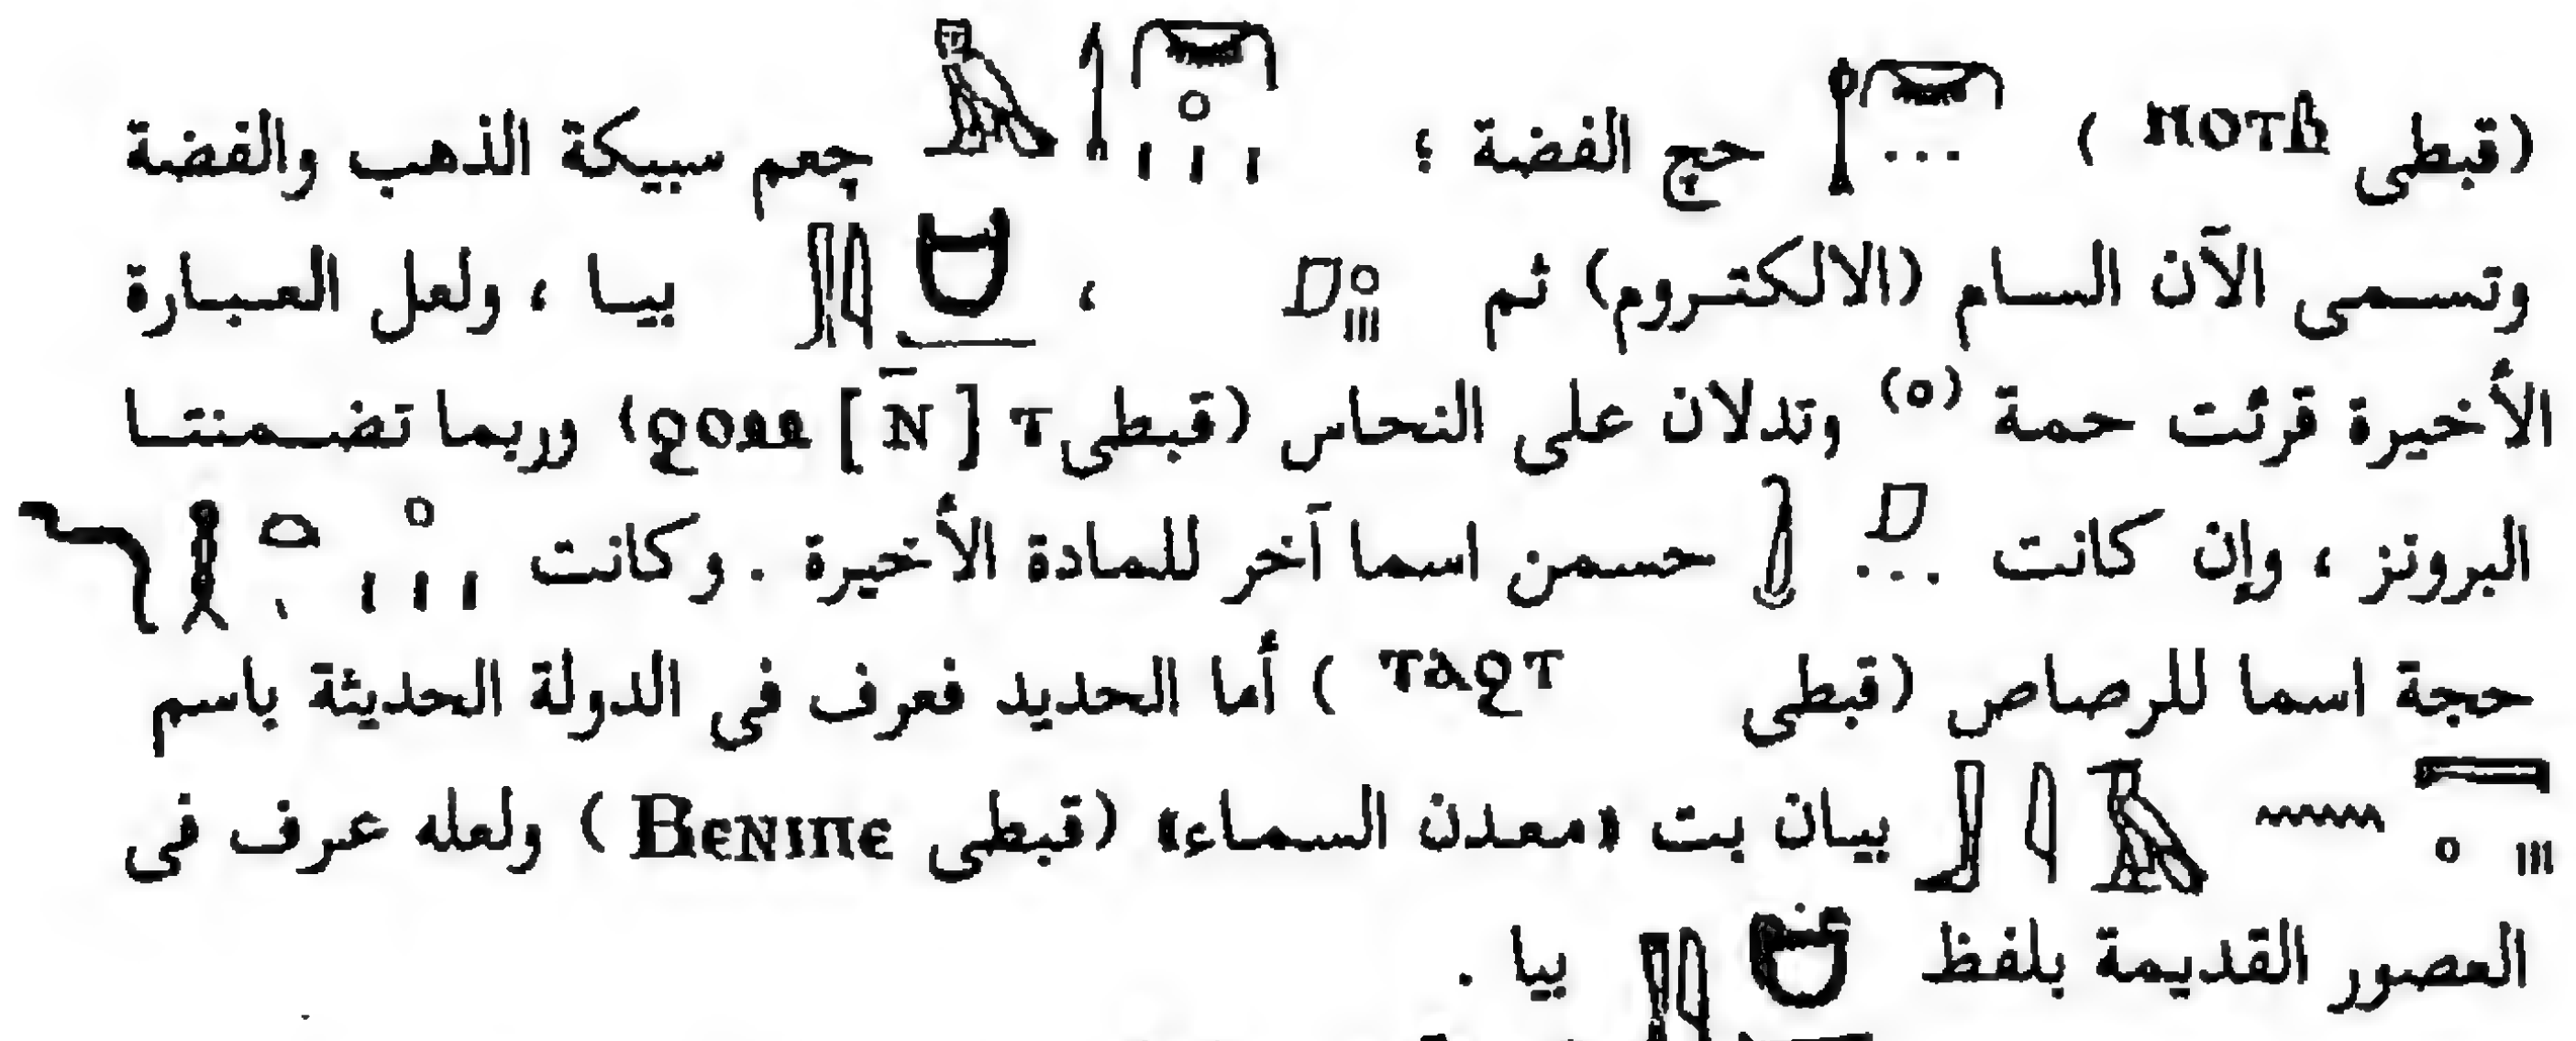 (قبطى ⲚⲞⲦⲂ ) حچ الفضة ؛ چعم سبيكة الذهب والفضة
وتسمى الآن السام (الالكتروم) ثم ، بيا ، ولعل العبارة
الأخيرة قرئت حمة (٥) وتدلان على النحاس (قبطى ϩⲟⲙ [ⲛ̄] ⲧ) وربما تضمنتا
البرونز ، وإن كانت حسمن اسما آخر للمادة الأخيرة . وكانت
حجة اسما للرصاص (قبطى ⲧⲁϩⲧ ) أما الحديد فعرف فى الدولة الحديثة باسم
بيان بت «معدن السماء» (قبطى Ⲃⲉⲛⲓⲡⲉ ) ولعله عرف فى
العصور القديمة بلفظ بيا .